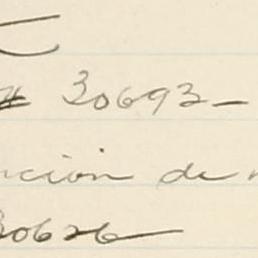 # 30693-
nción de
30626